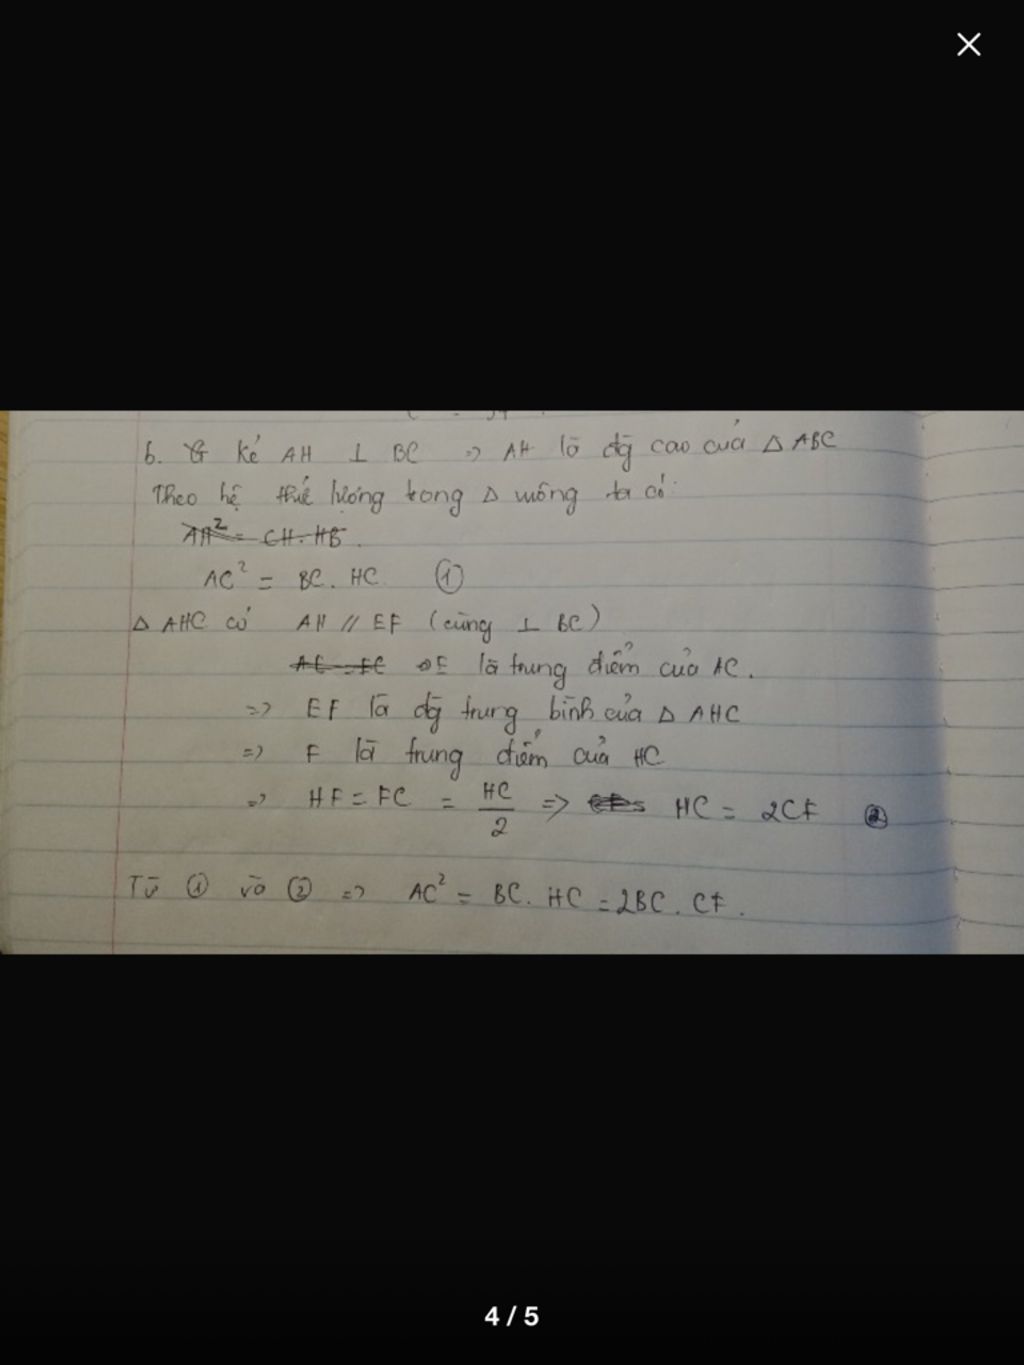 b. Kẻ AH ⊥ BC => AH là đg cao của Δ ABC
Theo hệ thức lượng trong Δ vuông ta có:
AH² = CH.HB.
AC² = BC.HC ①
Δ AHC có AH // EF (cùng ⊥ BC)
AE = EC E là trung điểm của AC.
=> EF là đg trung bình của Δ AHC
=> F là trung điểm của HC
=> HF = FC = HC/2 => HC = 2CF ②
Từ ① và ② => AC² = BC.HC = 2BC.CF.
4 / 5